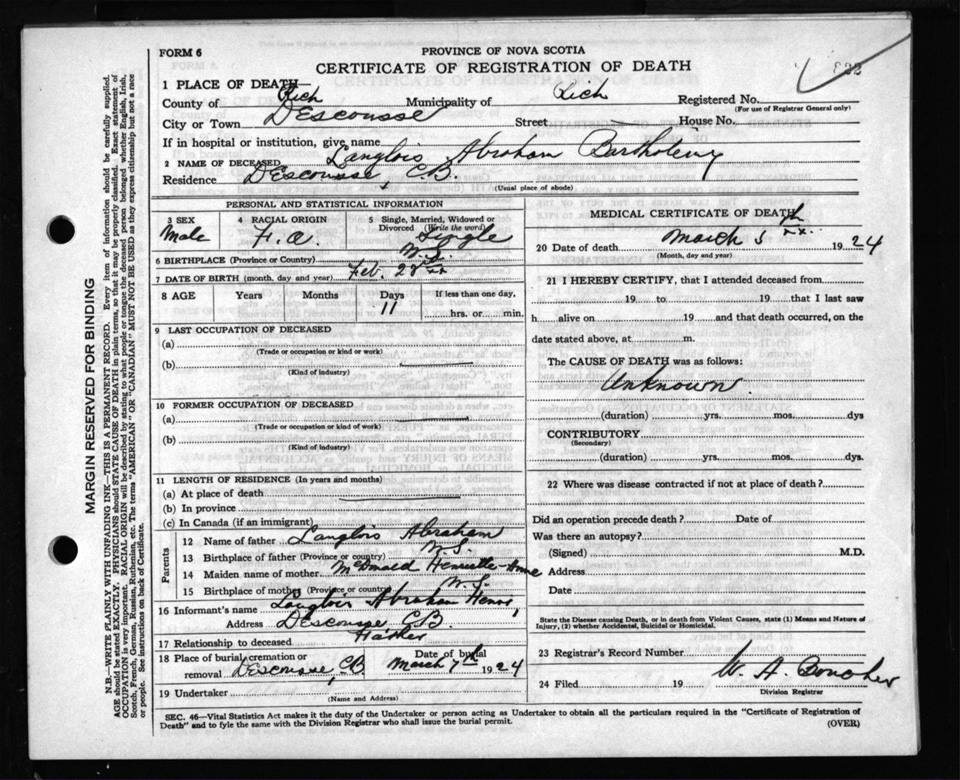 FORM 6
PROVINCE OF NOVA SCOTIA
CERTIFICATE OF REGISTRATION OF DEATH
1 PLACE OF DEATH—
County of Rich Municipality of Rich Registered No.
(For use of Registrar General only)
City or Town DEscousse Street — House No.
If in hospital or institution, give name
2 NAME OF DECEASED Langlois Abraham Bartholemy
Residence DEscousse, C.B.
(Usual place of abode)
PERSONAL AND STATISTICAL INFORMATION
3 SEX Male
4 RACIAL ORIGIN F. A.
5 Single, Married, Widowed or Divorced (Write the word) Single
6 BIRTHPLACE (Province or Country) N.S.
7 DATE OF BIRTH (month, day and year) Feb. 23
8 AGE Years Months Days 11 If less than one day, hrs. or min.
9 LAST OCCUPATION OF DECEASED
(a)
(Trade or occupation or kind or work)
(b)
(Kind of industry)
10 FORMER OCCUPATION OF DECEASED
(a)
(Trade or occupation or kind of work)
(b)
(Kind of industry)
11 LENGTH OF RESIDENCE (In years and months)
(a) At place of death
(b) In province
(c) In Canada (if an immigrant)
Parents
12 Name of father Langlois Abraham
13 Birthplace of father (Province or country) N.S.
14 Maiden name of mother McDonald Henriette-Anne
15 Birthplace of mother (Province or country) N.S.
16 Informant's name Langlois Abraham Henry
Address DEscousse C.B.
17 Relationship to deceased Father
18 Place of burial, cremation or removal DEscousse, C.B. Date of burial March 7th 1924
19 Undertaker
(Name and Address)
MEDICAL CERTIFICATE OF DEATH
20 Date of death March 5th 1924
(Month, day and year)
21 I HEREBY CERTIFY, that I attended deceased from
19 to 19 that I last saw
h alive on 19 and that death occurred, on the
date stated above, at m.
The CAUSE OF DEATH was as follows:
Unknown
(duration) yrs. mos. dys
CONTRIBUTORY
(Secondary)
(duration) yrs. mos. dys.
22 Where was disease contracted if not at place of death?
Did an operation precede death? Date of
Was there an autopsy?
(Signed) M.D.
Address
Date
State the Disease causing Death, or in death from Violent Causes, state (1) Means and Nature of Injury, (2) whether Accidental, Suicidal or Homicidal.
23 Registrar's Record Number
24 Filed 19 W. A. Donoher
Division Registrar
SEC. 46—Vital Statistics Act makes it the duty of the Undertaker or person acting as Undertaker to obtain all the particulars required in the "Certificate of Registration of
Death" and to fyle the same with the Division Registrar who shall issue the burial permit.
(OVER)
MARGIN RESERVED FOR BINDING
N.B.—WRITE PLAINLY WITH UNFADING INK—THIS IS A PERMANENT RECORD. Every item of information should be carefully supplied.
AGE should be stated EXACTLY. PHYSICIANS should STATE CAUSE OF DEATH in plain terms, so that it may be properly classified. Exact statement of
OCCUPATION is very important. RACIAL ORIGIN will be described by stating to what people or tongue the deceased person belonged whether English, Irish,
Scotch, French, German, Russian, Ruthenian, etc. The terms "AMERICAN" OR "CANADIAN" MUST NOT BE USED as they express citizenship but not a race
or people. See instructions on back of Certificate.